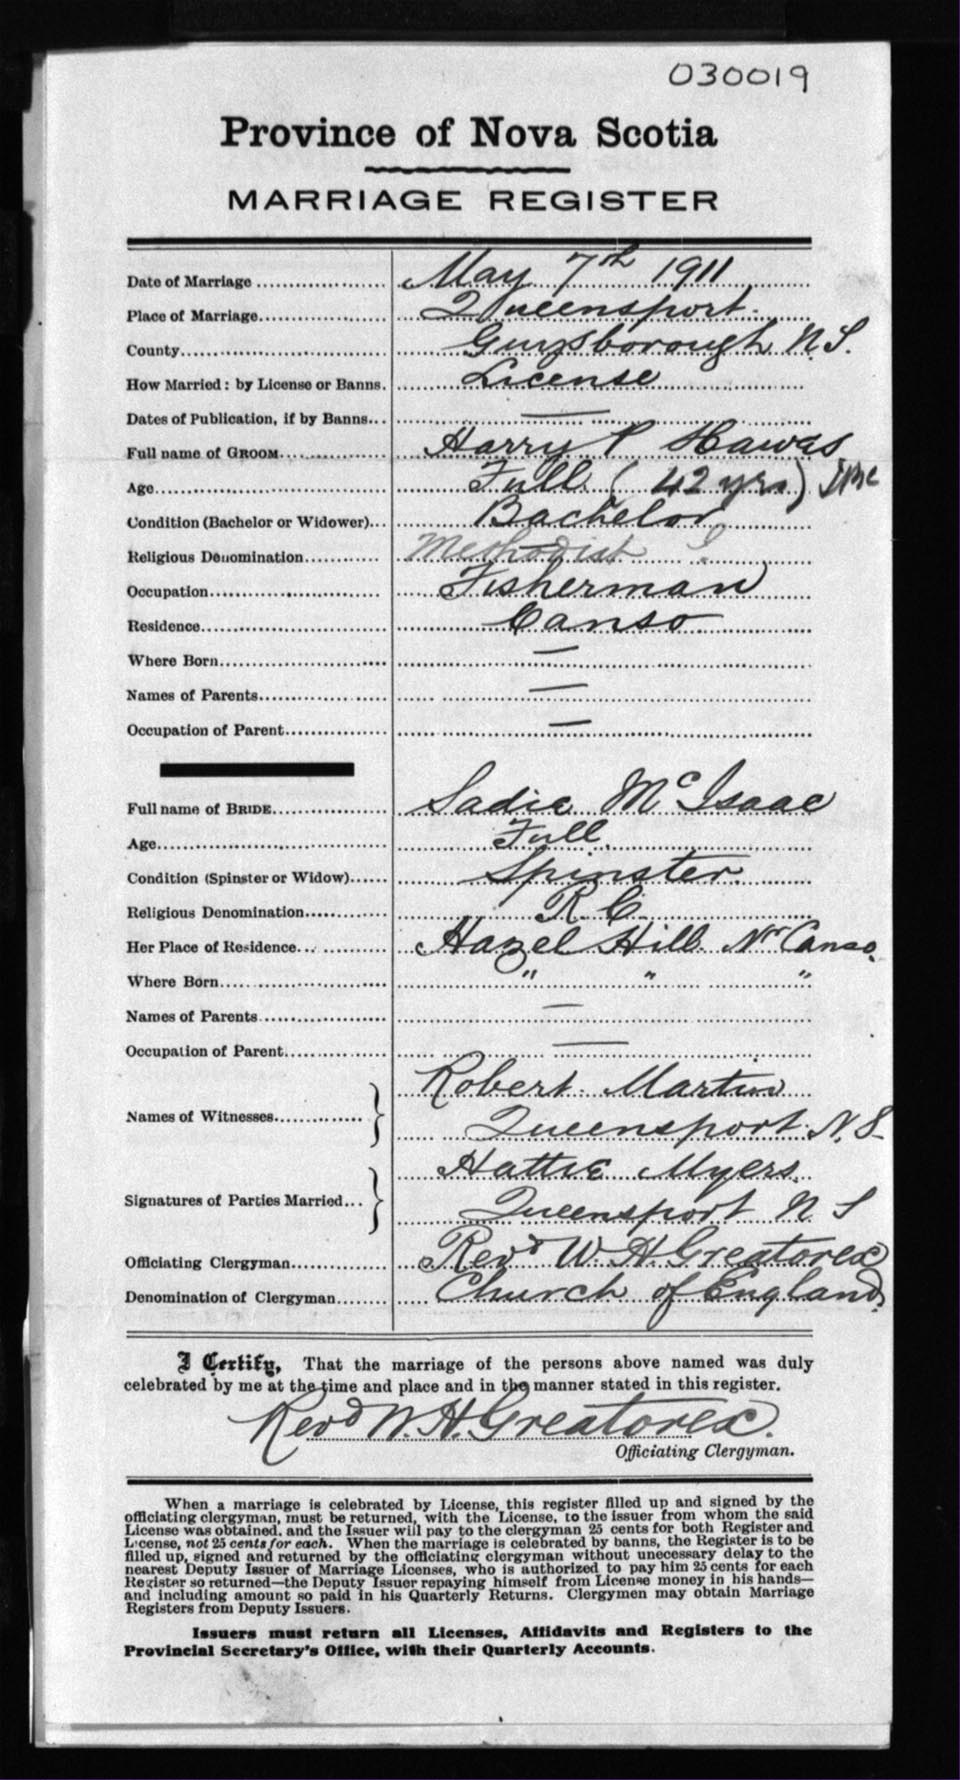 030019
Province of Nova Scotia
MARRIAGE REGISTER
Date of Marriage May 7th 1911
Place of Marriage Queensport.
County Guysborough N.S.
How Married: by License or Banns. License
Dates of Publication, if by Banns —
Full name of GROOM Harry P Hawes
Age Full (42 yrs)
Condition (Bachelor or Widower) Bachelor
Religious Denomination Methodist ?
Occupation Fisherman
Residence Canso
Where Born —
Names of Parents —
Occupation of Parent —
Full name of BRIDE Sadie McIsaac
Age Full.
Condition (Spinster or Widow) Spinster.
Religious Denomination R. C.
Her Place of Residence Hazel Hill. Nr Canso.
Where Born " " "
Names of Parents —
Occupation of Parent —
Names of Witnesses Robert Martin
Queensport. N.S.
Hattie Myers.
Signatures of Parties Married
Queensport N S
Officiating Clergyman Revd W. H. Greatorex
Denomination of Clergyman Church of England.
I Certify, That the marriage of the persons above named was duly
celebrated by me at the time and place and in the manner stated in this register.
Revd W. H. Greatorex.
Officiating Clergyman.
When a marriage is celebrated by License, this register filled up and signed by the
officiating clergyman, must be returned, with the License, to the issuer from whom the said
License was obtained, and the Issuer will pay to the clergyman 25 cents for both Register and
License, not 25 cents for each. When the marriage is celebrated by banns, the Register is to be
filled up, signed and returned by the officiating clergyman without unecessary delay to the
nearest Deputy Issuer of Marriage Licenses, who is authorized to pay him 25 cents for each
Register so returned—the Deputy Issuer repaying himself from License money in his hands—
and including amount so paid in his Quarterly Returns. Clergymen may obtain Marriage
Registers from Deputy Issuers.
Issuers must return all Licenses, Affidavits and Registers to the
Provincial Secretary's Office, with their Quarterly Accounts.